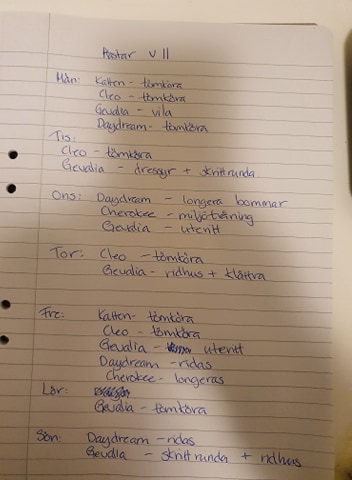 Hästar v 11
Mån: Katten - tömköra
Cleo - tömköra
Gevalia - vila
Daydream - tömköra
Tis:
Cleo - tömköra
Gevalia - dressyr + skrittrunda
Ons: Daydream - longera bommar
Cherokee - miljöträning
Gevalia - uteritt
Tor: Cleo - tömköra
Gevalia - ridhus + klättra
Fre: Katten - tömköra
Cleo - tömköra
Gevalia - uteritt
Daydream - ridas
Cherokee - longeras
Lör:
Gevalia - tömköra
Sön: Daydream - ridas
Gevalia - skrittrunda + ridhus